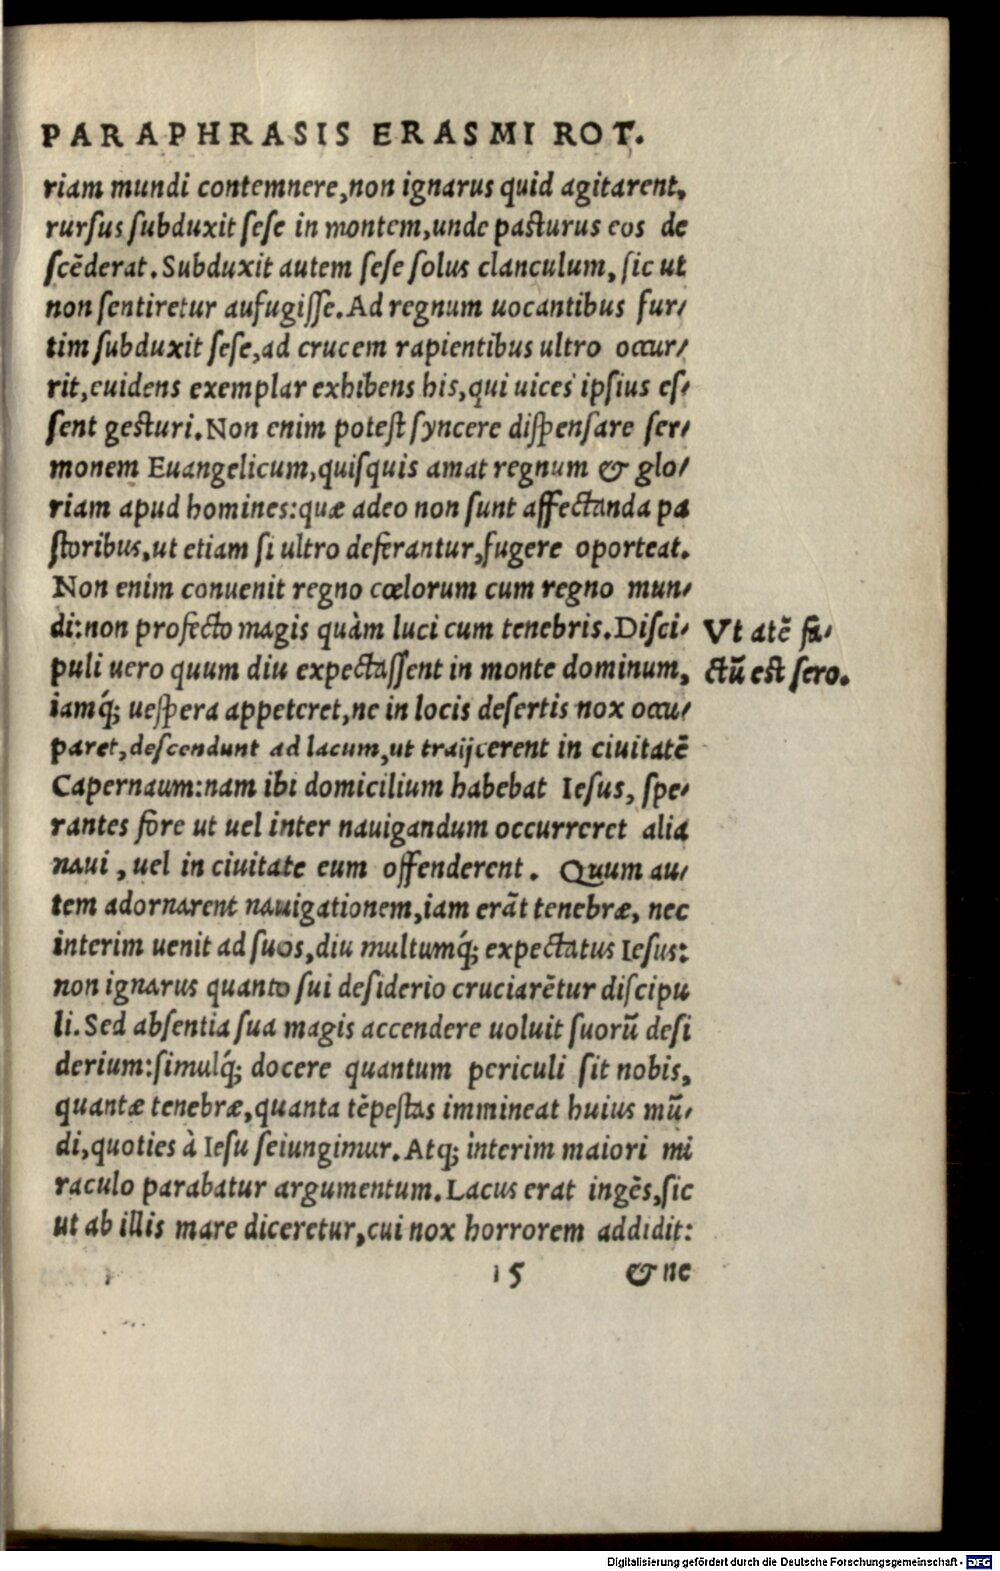 PARAPHRASIS ERASMI ROT.
riam mundi contemnere, non ignarus quid agitarent,
rursus subduxit sese in montem, unde pasturus eos de
scēderat. Subduxit autem sese solus clanculum, sic ut
non sentiretur aufugisse. Ad regnum uocantibus fur-
tim subduxit sese, ad crucem rapientibus ultro occur-
rit, euidens exemplar exhibens his, qui uices ipsius es-
sent gesturi. Non enim potest syncere dispensare ser-
monem Euangelicum, quisquis amat regnum & glo-
riam apud homines: quæ adeo non sunt affectanda pa
storibus, ut etiam si ultro deferantur, fugere oporteat.
Non enim conuenit regno cœlorum cum regno mun-
di: non profecto magis quàm luci cum tenebris. Disci-
puli uero quum diu expectassent in monte dominum,
iamq́; uespera appeteret, ne in locis desertis nox occu-
paret, descendunt ad lacum, ut traijcerent in ciuitatē
Capernaum: nam ibi domicilium habebat Iesus, spe-
rantes fore ut uel inter nauigandum occurreret alia
naui, uel in ciuitate eum offenderent. Quum au-
tem adornarent nauigationem, iam erāt tenebræ, nec
interim uenit ad suos, diu multumq́; expectatus Iesus:
non ignarus quanto sui desiderio cruciarētur discipu
li. Sed absentia sua magis accendere uoluit suorū desi
derium: simulq́; docere quantum periculi sit nobis,
quantæ tenebræ, quanta tēpestas immineat huius mū-
di, quoties à Iesu seiungimur. Atq; interim maiori mi
raculo parabatur argumentum. Lacus erat ingēs, sic
ut ab illis mare diceretur, cui nox horrorem addidit:
15 & ne
Vt atē fa-
ctū est sero.
Digitalisierung gefördert durch die Deutsche Forschungsgemeinschaft - DFG